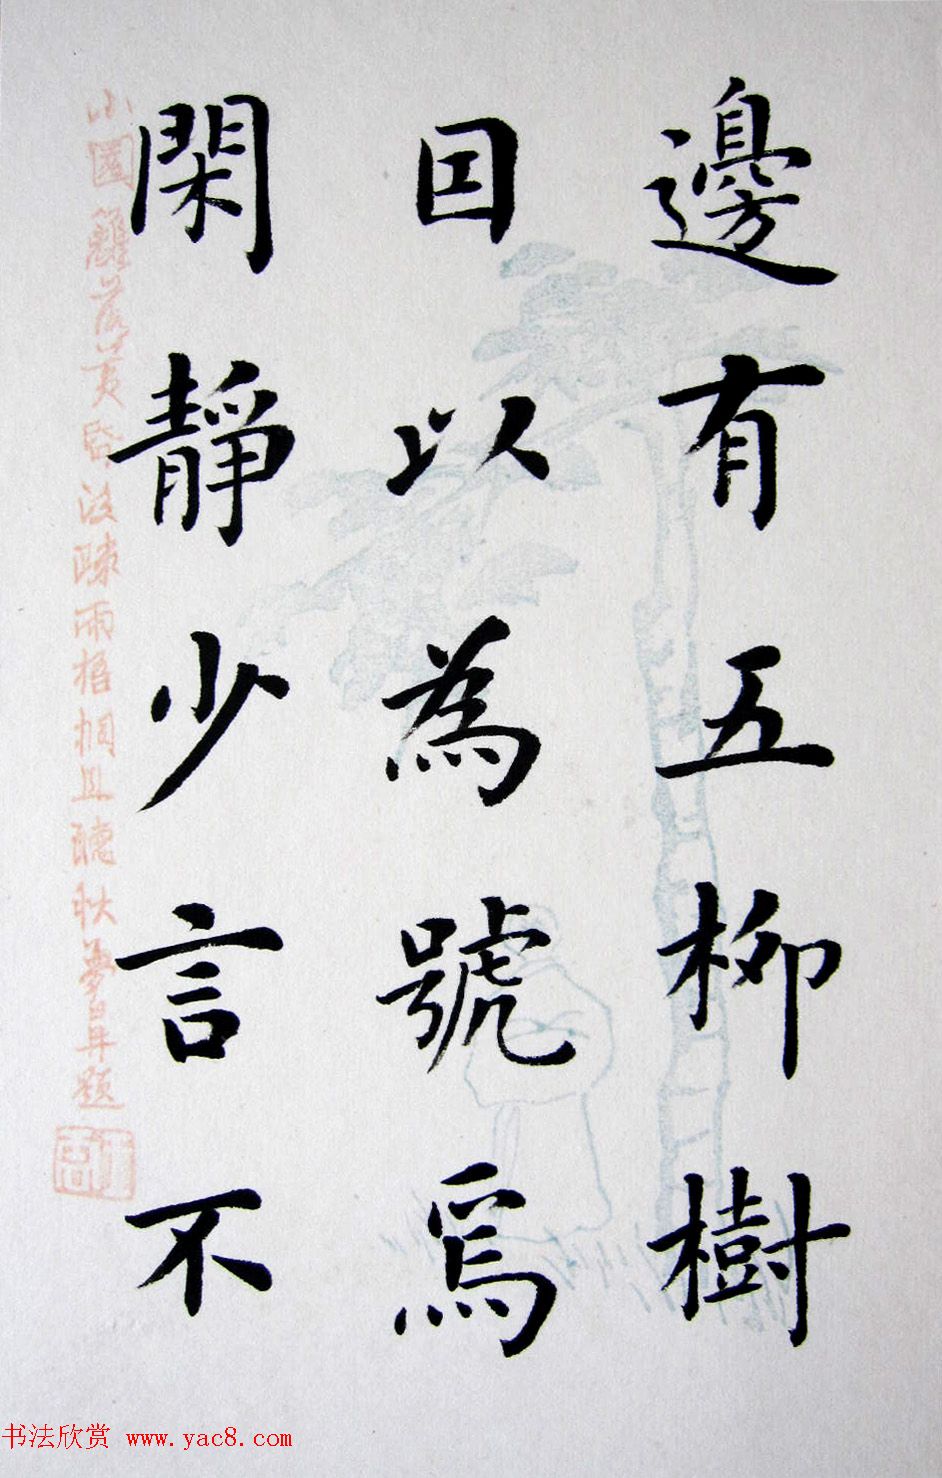 邊有五柳樹
囙以為號焉
閑靜少言不
小園籬落黄昏後疎雨梧桐且聽秋夢題
书法欣赏 www.yac8.com